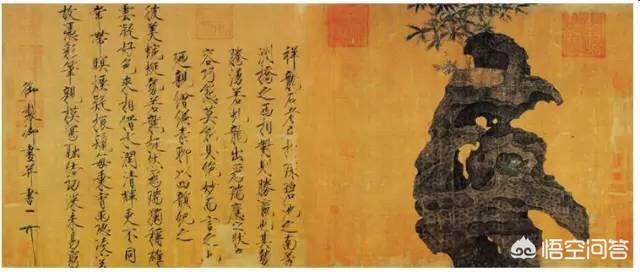 祥龍石者立於環碧池之南芳
洲橋之西相對則勝瀛也其勢
騰湧若虬龍出為瑞應之狀奇
容巧態莫能具絕妙而言之也
廼親繪縑素聊以四韻紀之
彼美蜿蜒勢若龍挺然為瑞獨稱雄
雲凝好色來相借水潤清輝更不同
常帶暝煙疑振鬣每乘宵雨恐凌空
故憑彩筆親模寫融結功深未易窮
御製御畫并書
悟空问答